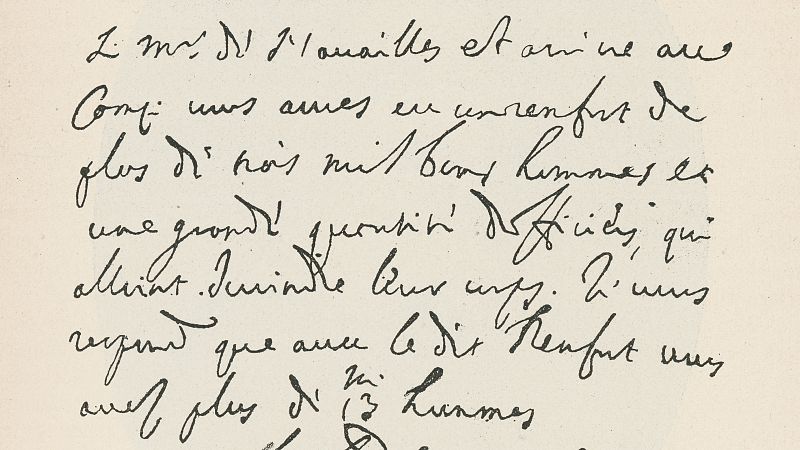 L mrs de Nouailles est arrive au
Camp. nous avons eu un renfort de
plus de trois mil bons hommes et
une grande quantité d'officiers, qui
alloint Juindre leur corps. Je vous
respond que avec le dit Renfort nous
avons plus de 13 m hommes